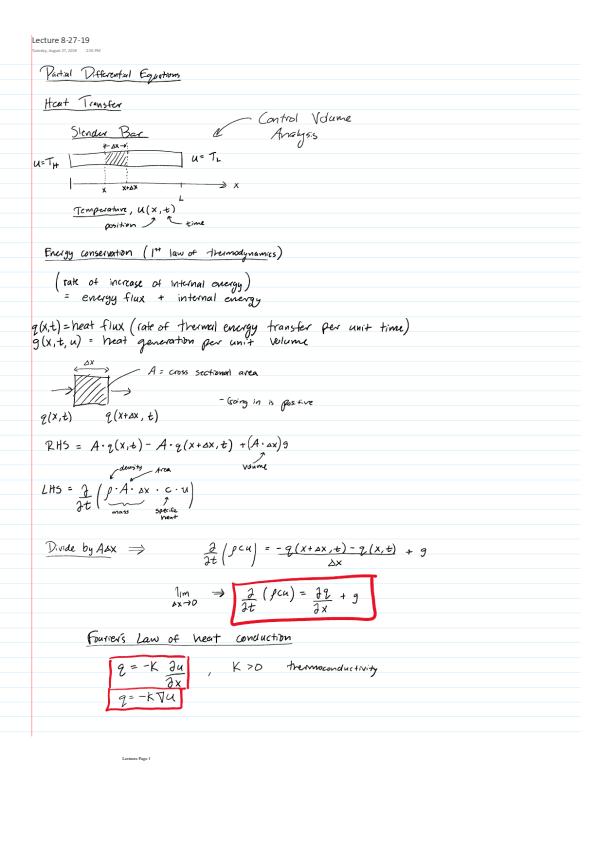 Lecture 8-27-19
Tuesday, August 27, 2019 2:00 PM
Partial Differential Equations
Heat Transfer
Control Volume
Analysis
Slender Bar
Δx
u=T_H
u = T_L
x x+Δx L x
Temperature, u(x,t)
position time
Energy conservation (1st law of thermodynamics)
(rate of increase of internal energy)
= energy flux + internal energy
q(x,t) = heat flux (rate of thermal energy transfer per unit time)
g(x,t,u) = heat generation per unit volume
Δx
A = cross sectional area
- Going in is positive
q(x,t) q(x+Δx, t)
RHS = A·q(x,t) - A·q(x+Δx,t) + (A·Δx)g
volume
density Area
LHS = ∂/∂t (ρ·A·Δx·c·u)
mass specific heat
Divide by AΔx ⟹ ∂/∂t (ρcu) = -q(x+Δx,t) - q(x,t) / Δx + g
lim Δx→0 ⟹ ∂/∂t (ρcu) = ∂q/∂x + g
Fourier's Law of heat conduction
q = -K ∂u/∂x , K > 0 thermoconductivity
q = -K∇u
Lectures Page 1